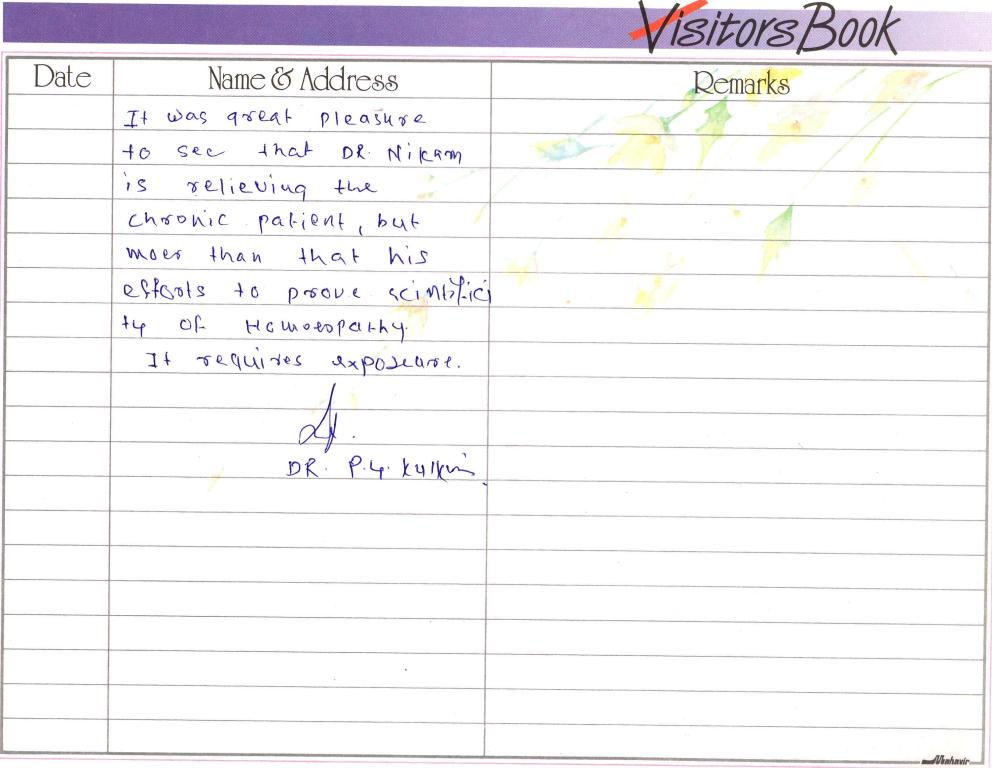 Visitors Book
Date Name & Address Remarks
It was great pleasure
to see that DR. Nikam
is relieving the
chronic patient, but
moer than that his
efforts to prove scintifici
ty of Homoeopathy.
It requires exposeure.
DR. P.Y. Kulkrni
Mahavir